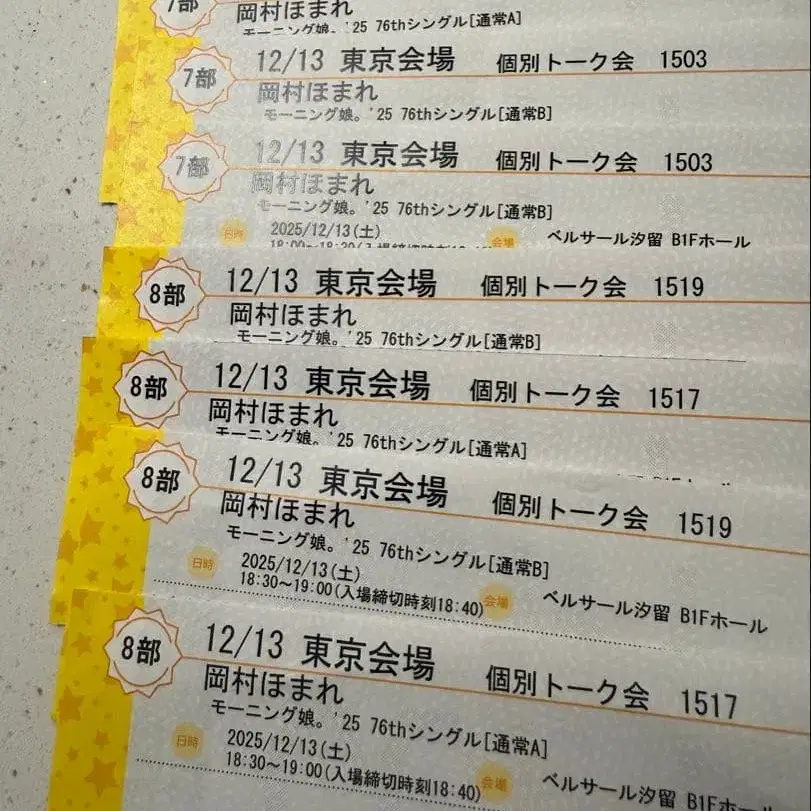 7部
岡村ほまれ
モーニング娘。'25 76thシングル[通常A]
7部 12/13 東京会場 個別トーク会 1503
岡村ほまれ
モーニング娘。'25 76thシングル[通常B]
7部 12/13 東京会場 個別トーク会 1503
岡村ほまれ
モーニング娘。'25 76thシングル[通常B]
日時 2025/12/13(土) 会場 ベルサール汐留 B1Fホール
8部 12/13 東京会場 個別トーク会 1519
岡村ほまれ
モーニング娘。'25 76thシングル[通常B]
8部 12/13 東京会場 個別トーク会 1517
岡村ほまれ
モーニング娘。'25 76thシングル[通常A]
8部 12/13 東京会場 個別トーク会 1519
岡村ほまれ
モーニング娘。'25 76thシングル[通常B]
日時 2025/12/13(土)
18:30～19:00(入場締切時刻18:40) 会場 ベルサール汐留 B1Fホール
8部 12/13 東京会場 個別トーク会 1517
岡村ほまれ
モーニング娘。'25 76thシングル[通常A]
日時 2025/12/13(土)
18:30～19:00(入場締切時刻18:40) 会場 ベルサール汐留 B1Fホール